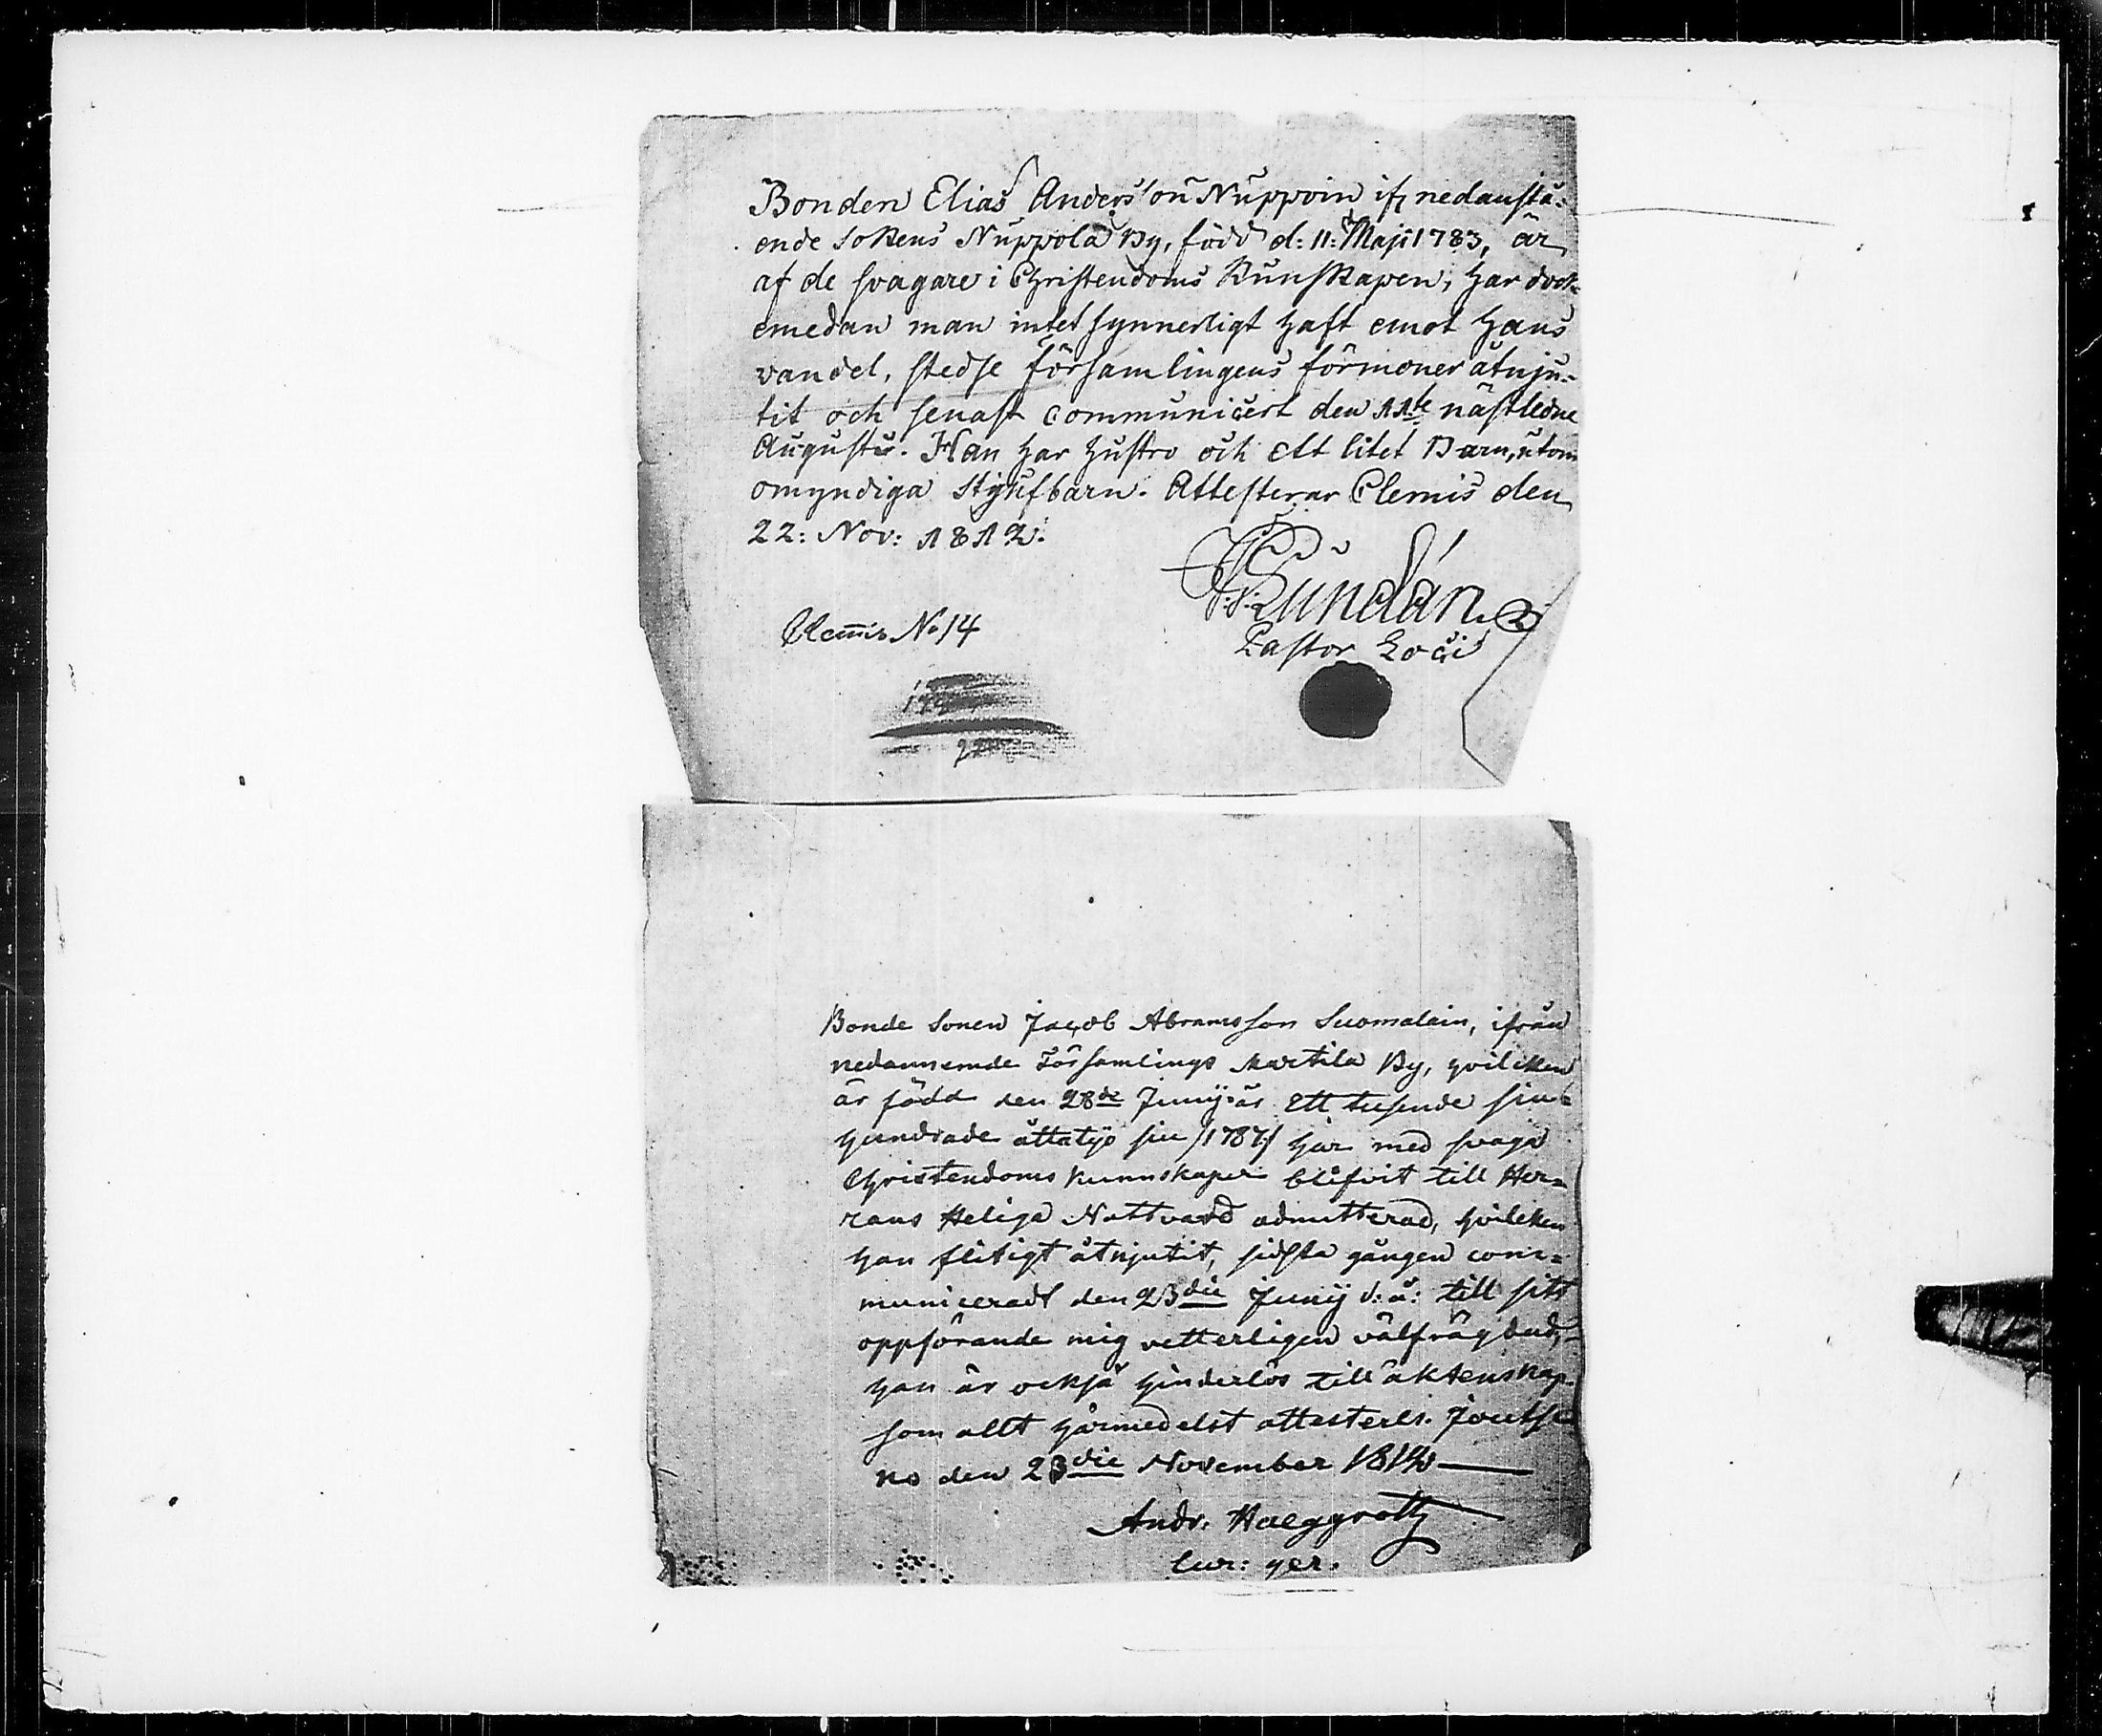 Bonden Elias Andersson Nuppoin ifr nedanstå-
ende Sokens Nuppola By, född d: 11: Maji 1783, är
af de svagare i Christendoms Kunskapen, har dock
emedan man intet synnerligt haft emot hans
vandel, stedse församlingens förmoner åtnju-
tit och senast communicert den 11te nästledne
Augusti. Han har hustro och ett litet Barn, utom
omyndiga styufbarn. Attesterar Clemis den
22: Nov: 1812.
Pastor Loci
Clemis No 14
Bonde Sonen Jacob Abramsson Suomalain, ifrån
nedannemde Församlings Martila By, hvilcken
är född den 28de Junij år Ett tusende siu-
hundrade åttatijo siu /:1787:/ har med svaga
Christendoms kunnskaper blifvit till Her-
rans Heliga Nattvard admitterad, hvilcken
han flitigt åtnjutit, sidsta gången com-
municeradt den 23die Junij d: å: till sitt
oppförande mig vetterligen välfrägdad,
han är också hinderlös till äktenskap-
som allt härmedelst attesteras. Joutse-
no den 23die November 1812
Andr. Haeggroth
Cur: ger.